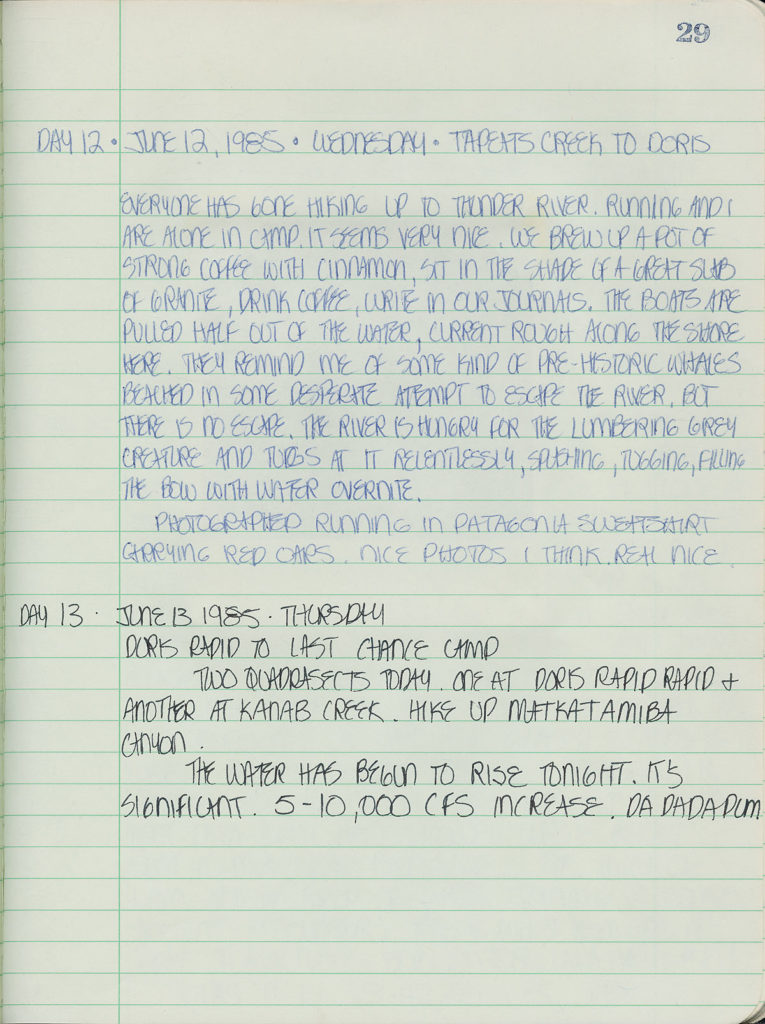 29
DAY 12 • JUNE 12, 1985 • WEDNESDAY • TAPEATS CREEK TO DORIS
EVERYONE HAS GONE HIKING UP TO THUNDER RIVER. RUNNING AND I
ARE ALONE IN CAMP. IT SEEMS VERY NICE. WE BREW UP A POT OF
STRONG COFFEE WITH CINNAMON, SIT IN THE SHADE OF A GREAT SLAB
OF GRANITE, DRINK COFFEE, WRITE IN OUR JOURNALS. THE BOATS ARE
PULLED HALF OUT OF THE WATER, CURRENT ROUGH ALONG THE SHORE
HERE. THEY REMIND ME OF SOME KIND OF PRE-HISTORIC WHALES
BEACHED IN SOME DESPERATE ATEMPT TO ESCAPE THE RIVER, BUT
THERE IS NO ESCAPE. THE RIVER IS HUNGRY FOR THE LUMBERING GREY
CREATURE AND TUGS AT IT RELENTLESSLY, SPLASHING, TUGGING, FILLING
THE BOW WITH WATER OVERNITE.
PHOTOGRAPHED RUNNING IN PATAGONIA SWEATSHIRT
CARRYING RED OARS. NICE PHOTOS I THINK. REAL NICE
DAY 13 • JUNE 13 1985 • THURSDAY
DORIS RAPID TO LAST CHANCE CAMP
TWO QUADRASECTS TODAY. ONE AT DORIS RAPID RAPID +
ANOTHER AT KANAB CREEK. HIKE UP MATKATAMIBA
CANYON.
THE WATER HAS BEGUN TO RISE TONIGHT. IT'S
SIGNIFICANT. 5-10,000 CFS INCREASE. DA DADADUM